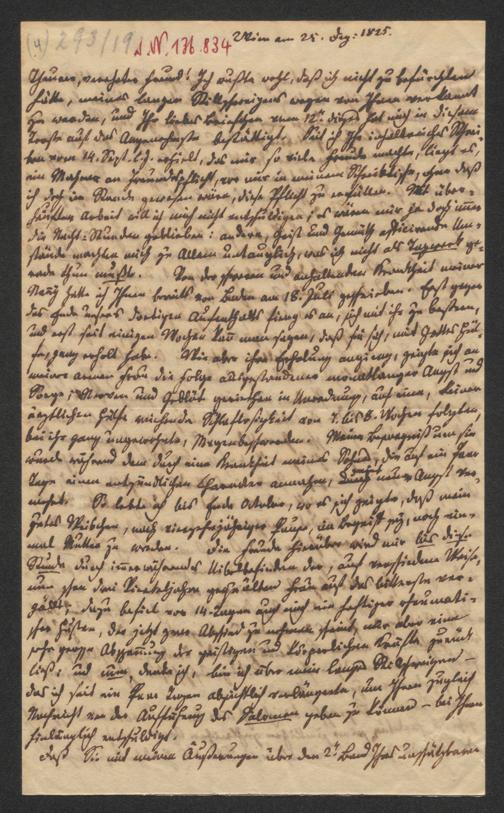 (4) 293/19 J. N. 136.834 Wien am 25. Dez: 1825.
Theurer, verehrter Freund! Ich wußte wohl, daß ich nicht zu befürchten
hätte, meines langen Stillschweigens wegen von Ihnen verkannt
zu werden, und Ihr liebes Briefchen vom 12. dieses hat mich in diesem
Troste auf das Angenehmste bestättigt. Seit ich Ihr inhaltreiches Schrei-
ben vom 14. Sept. l. J. erhielt, das mir so viele Freude machte, liegt es,
ein Mahner an Freundespflicht, vor mir in meinem Schreibtische, ohne daß
ich doch im Stande gewesen wäre, diese Pflicht zu erfüllen. Mit über-
häufter Arbeit will ich mich nicht entschuldigen; es wären mir ja doch immer
die Nacht-Stunden geblieben: andere, Geist und Gemüth afficirende Um-
stände machten mich zu Allem untauglich, was ich nicht als Tagwerk ge-
rade thun mußte. Von der schweren und anhaltenden Krankheit meiner
hatte ich Ihnen bereits von Baden am 18. Juli geschrieben. Erst gegen
das Ende unsers dortigen Aufenthalts fieng es an, sich mit ihr zu bessern,
und erst seit einigen Wochen kann man sagen, daß sie sich, mit Gottes Hül-
fe, ganz erholt habe. Wie aber ihre Erholung angieng, zeigte sich an
meiner armen Frau die Folge ausgestandener monatlanger Angst und
Sorge; Nerven und Geblüt geriethen in Unordnung, auf eine, keiner
ärztlichen Hülfe weichende Schlaflosigkeit von 7 bis 8 Wochen folgten,
bei ihr ganz ungewohnte, Magenbeschwerden. Meine Besorgniß um sie
wurde während dem durch eine Krankheit meines Sohns, die auf ein paar
Tage einen entzündlichen Charakter annahm, durch neue Angst ver-
mehrt. So lebte ich bis Ende October, wo es sich zeigte, daß mein
gutes Weibchen, nach vierzehnjähriger Pause, im Begriff sey, noch ein-
mal Mutter zu werden. Die Freude hierüber wird mir bis diese
Stunde durch immerwährendes Uibelbefinden der, auf verschiedene Weise,
nun schon drei Vierteljahre gequälten Frau auf das bitterste ver-
gällt; dazu befiel vor 14 Tagen auch mich ein heftiger rheumati-
scher Husten, der jetzt zwar Abschied zu nehmen scheint, mir aber eine
sehr große Abspannung der geistigen und körperlichen Kräfte zurück
ließ; und nun, denke ich, bin ich über mein langes Stillschweigen –
das ich seit ein Paar Tagen absichtlich verlängerte, um Ihnen zugleich
Nachricht von der Aufführung des Salomon geben zu können – bei Ihnen
hinlänglich entschuldigt.
Daß Sie mit meinen Äußerungen über den 2t. Band Ihres unschätzbaren